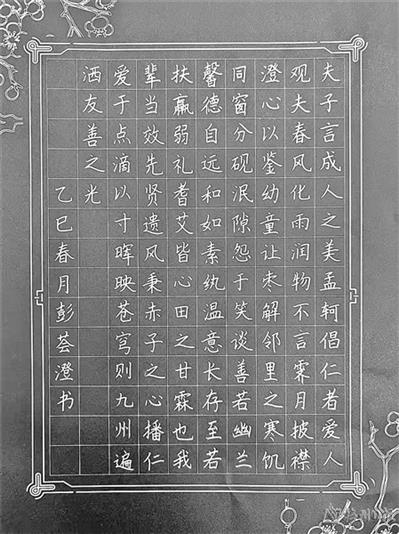 夫子言成人之美孟轲倡仁者爱人
观夫春风化雨润物不言霁月披襟
澄心以鉴幼童让枣解邻里之寒饥
同窗分砚泯隙怨于笑谈善若幽兰
馨德自远和如素纨温意长存至若
扶羸弱礼耆艾皆心田之甘霖也我
辈当效先贤遗风秉赤子之心播仁
爱于点滴以寸晖映苍穹则九州遍
洒友善之光
乙巳春月彭荟澄书